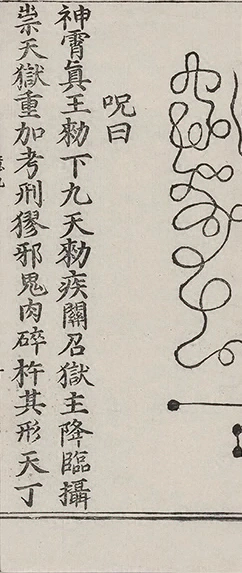 呪曰
神霄眞王勑下九天勑疾關召獄主降臨攝
祟天獄重加考刑㺒邪鬼肉碎杵其形天丁